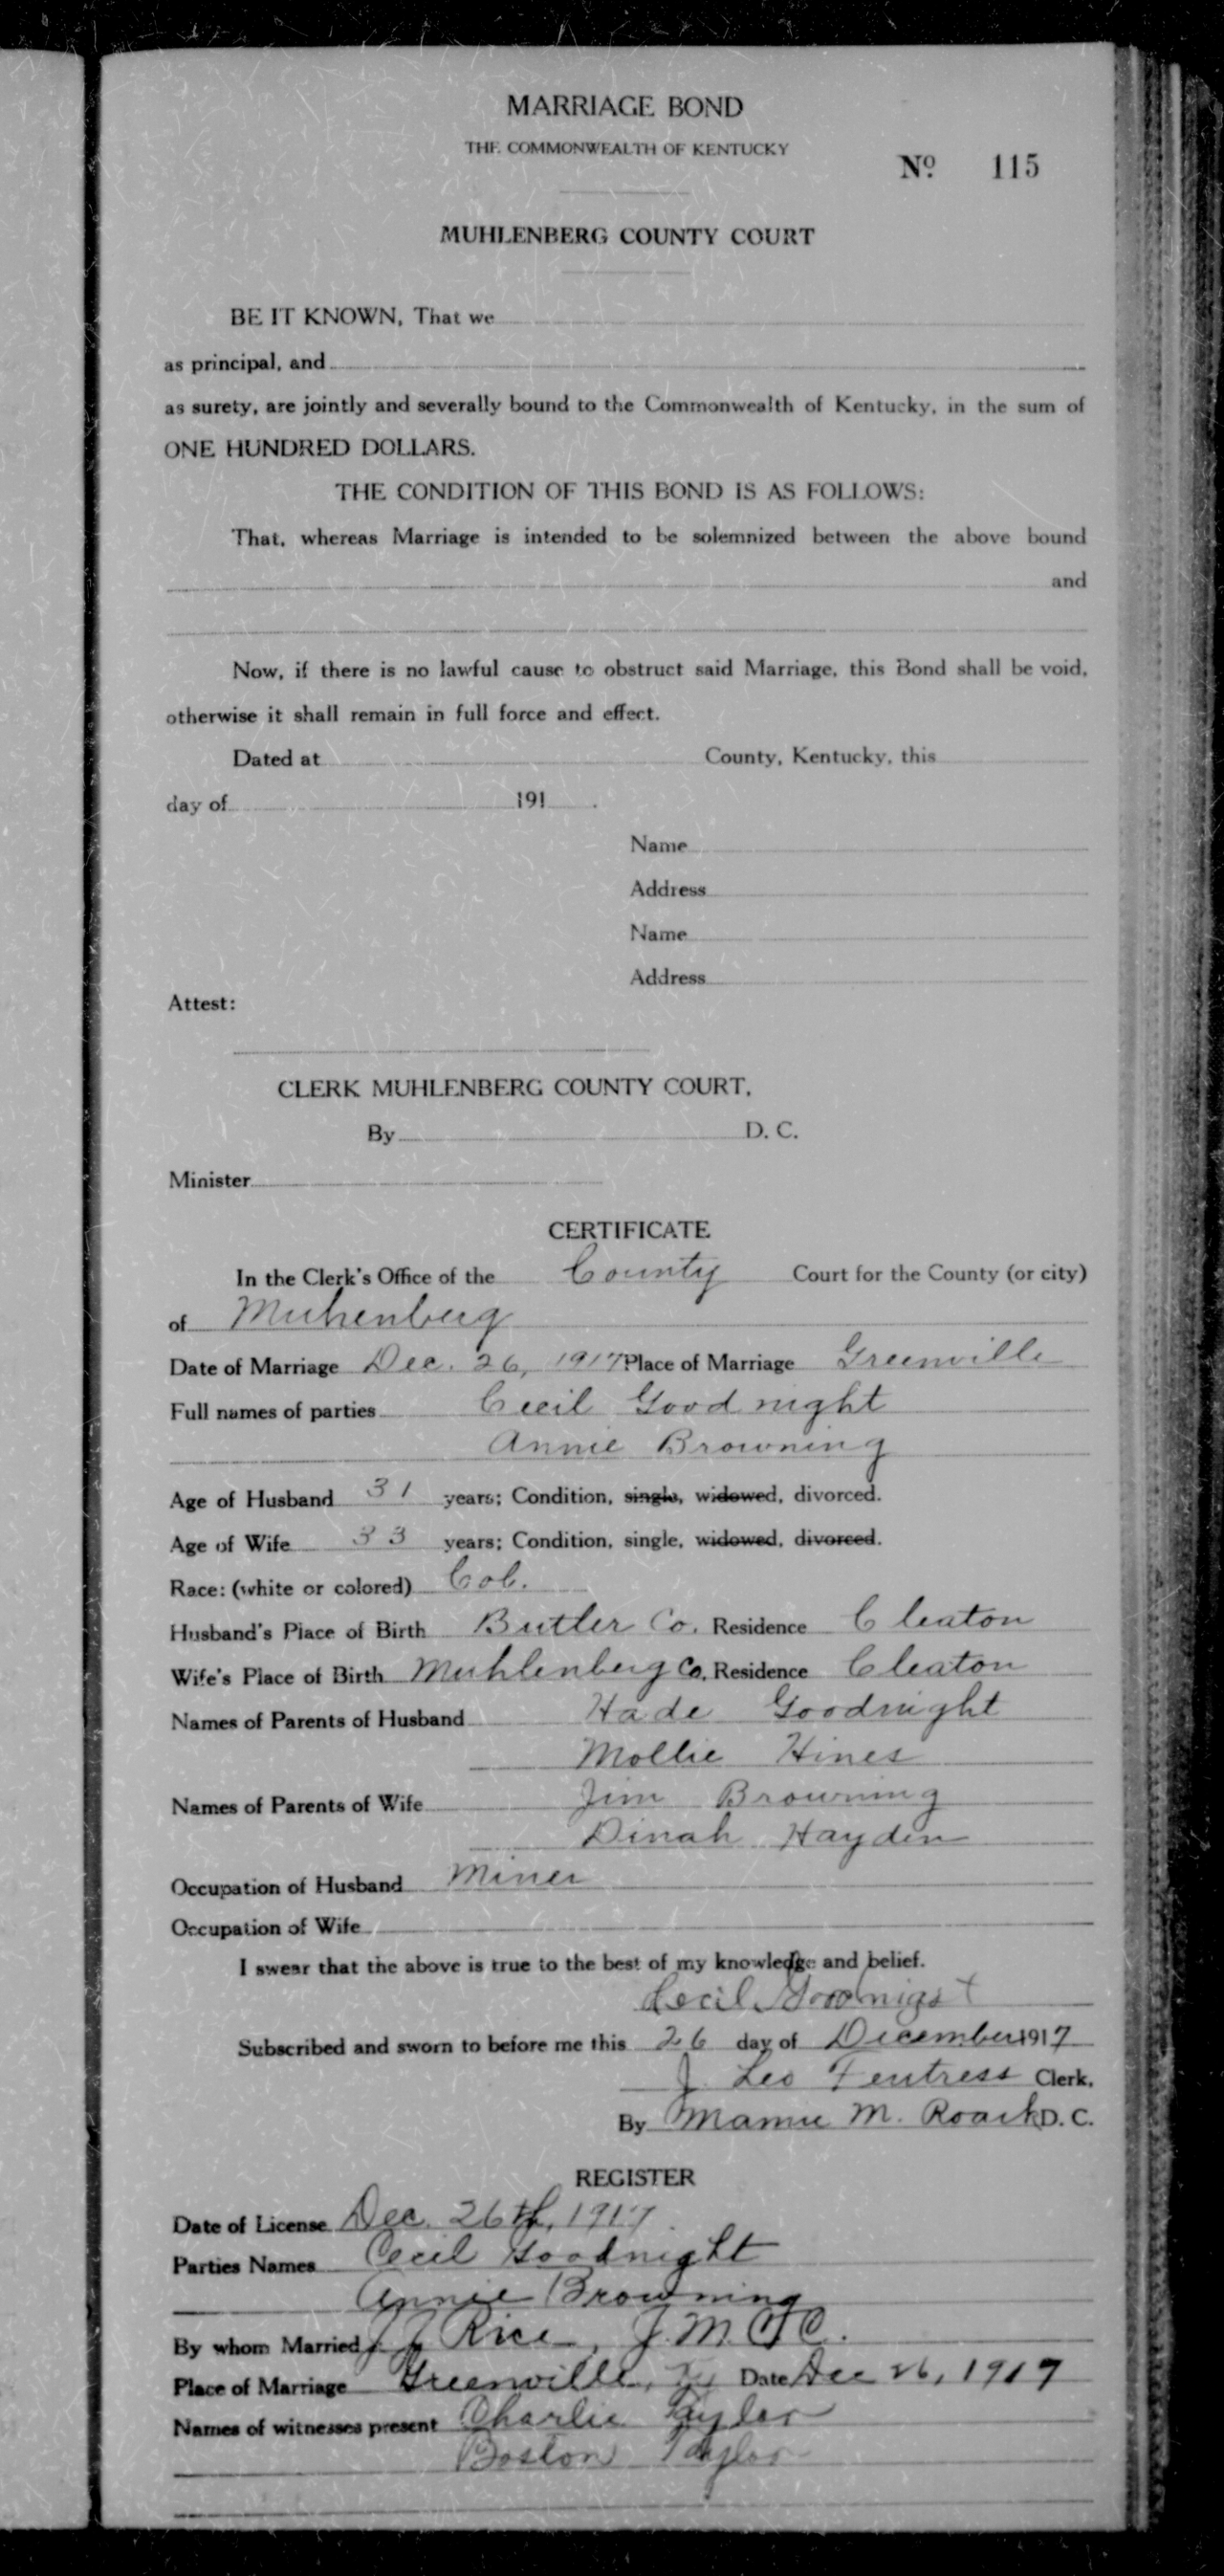 MARRIAGE BOND
THE COMMONWEALTH OF KENTUCKY
No 115
MUHLENBERG COUNTY COURT
BE IT KNOWN, That we
as principal, and
as surety, are jointly and severally bound to the Commonwealth of Kentucky, in the sum of
ONE HUNDRED DOLLARS.
THE CONDITION OF THIS BOND IS AS FOLLOWS:
That, whereas Marriage is intended to be solemnized between the above bound
and
Now, if there is no lawful cause to obstruct said Marriage, this Bond shall be void,
otherwise it shall remain in full force and effect.
Dated at County, Kentucky, this
day of 191 .
Name
Address
Name
Address
Attest:
CLERK MUHLENBERG COUNTY COURT,
By D. C.
Minister
CERTIFICATE
In the Clerk's Office of the County Court for the County (or city)
of Muhenberg
Date of Marriage Dec. 26, 1917 Place of Marriage Greenville
Full names of parties Cecil Goodnight
Annie Browning
Age of Husband 31 years; Condition, single, widowed, divorced.
Age of Wife 33 years; Condition, single, widowed, divorced.
Race: (white or colored) Col.
Husband's Place of Birth Butler Co. Residence Cleaton
Wife's Place of Birth Muhlenberg Co. Residence Cleaton
Names of Parents of Husband Hade Goodnight
Mollie Hines
Names of Parents of Wife Jim Browning
Dinah Hayden
Occupation of Husband Miner
Occupation of Wife
I swear that the above is true to the best of my knowledge and belief.
Cecil
Subscribed and sworn to before me this 26 day of December 1917
J. Leo Fentress Clerk.
By Mamie M. Roark D. C.
REGISTER
Date of License Dec. 26th, 1917
Parties Names Cecil Goodnight
Annie Browning
By whom Married J. J. Rice, J.M.C.
Place of Marriage Greenville, Ky Date Dec 26, 1917
Names of witnesses present Charlie Taylor
Boston Taylor